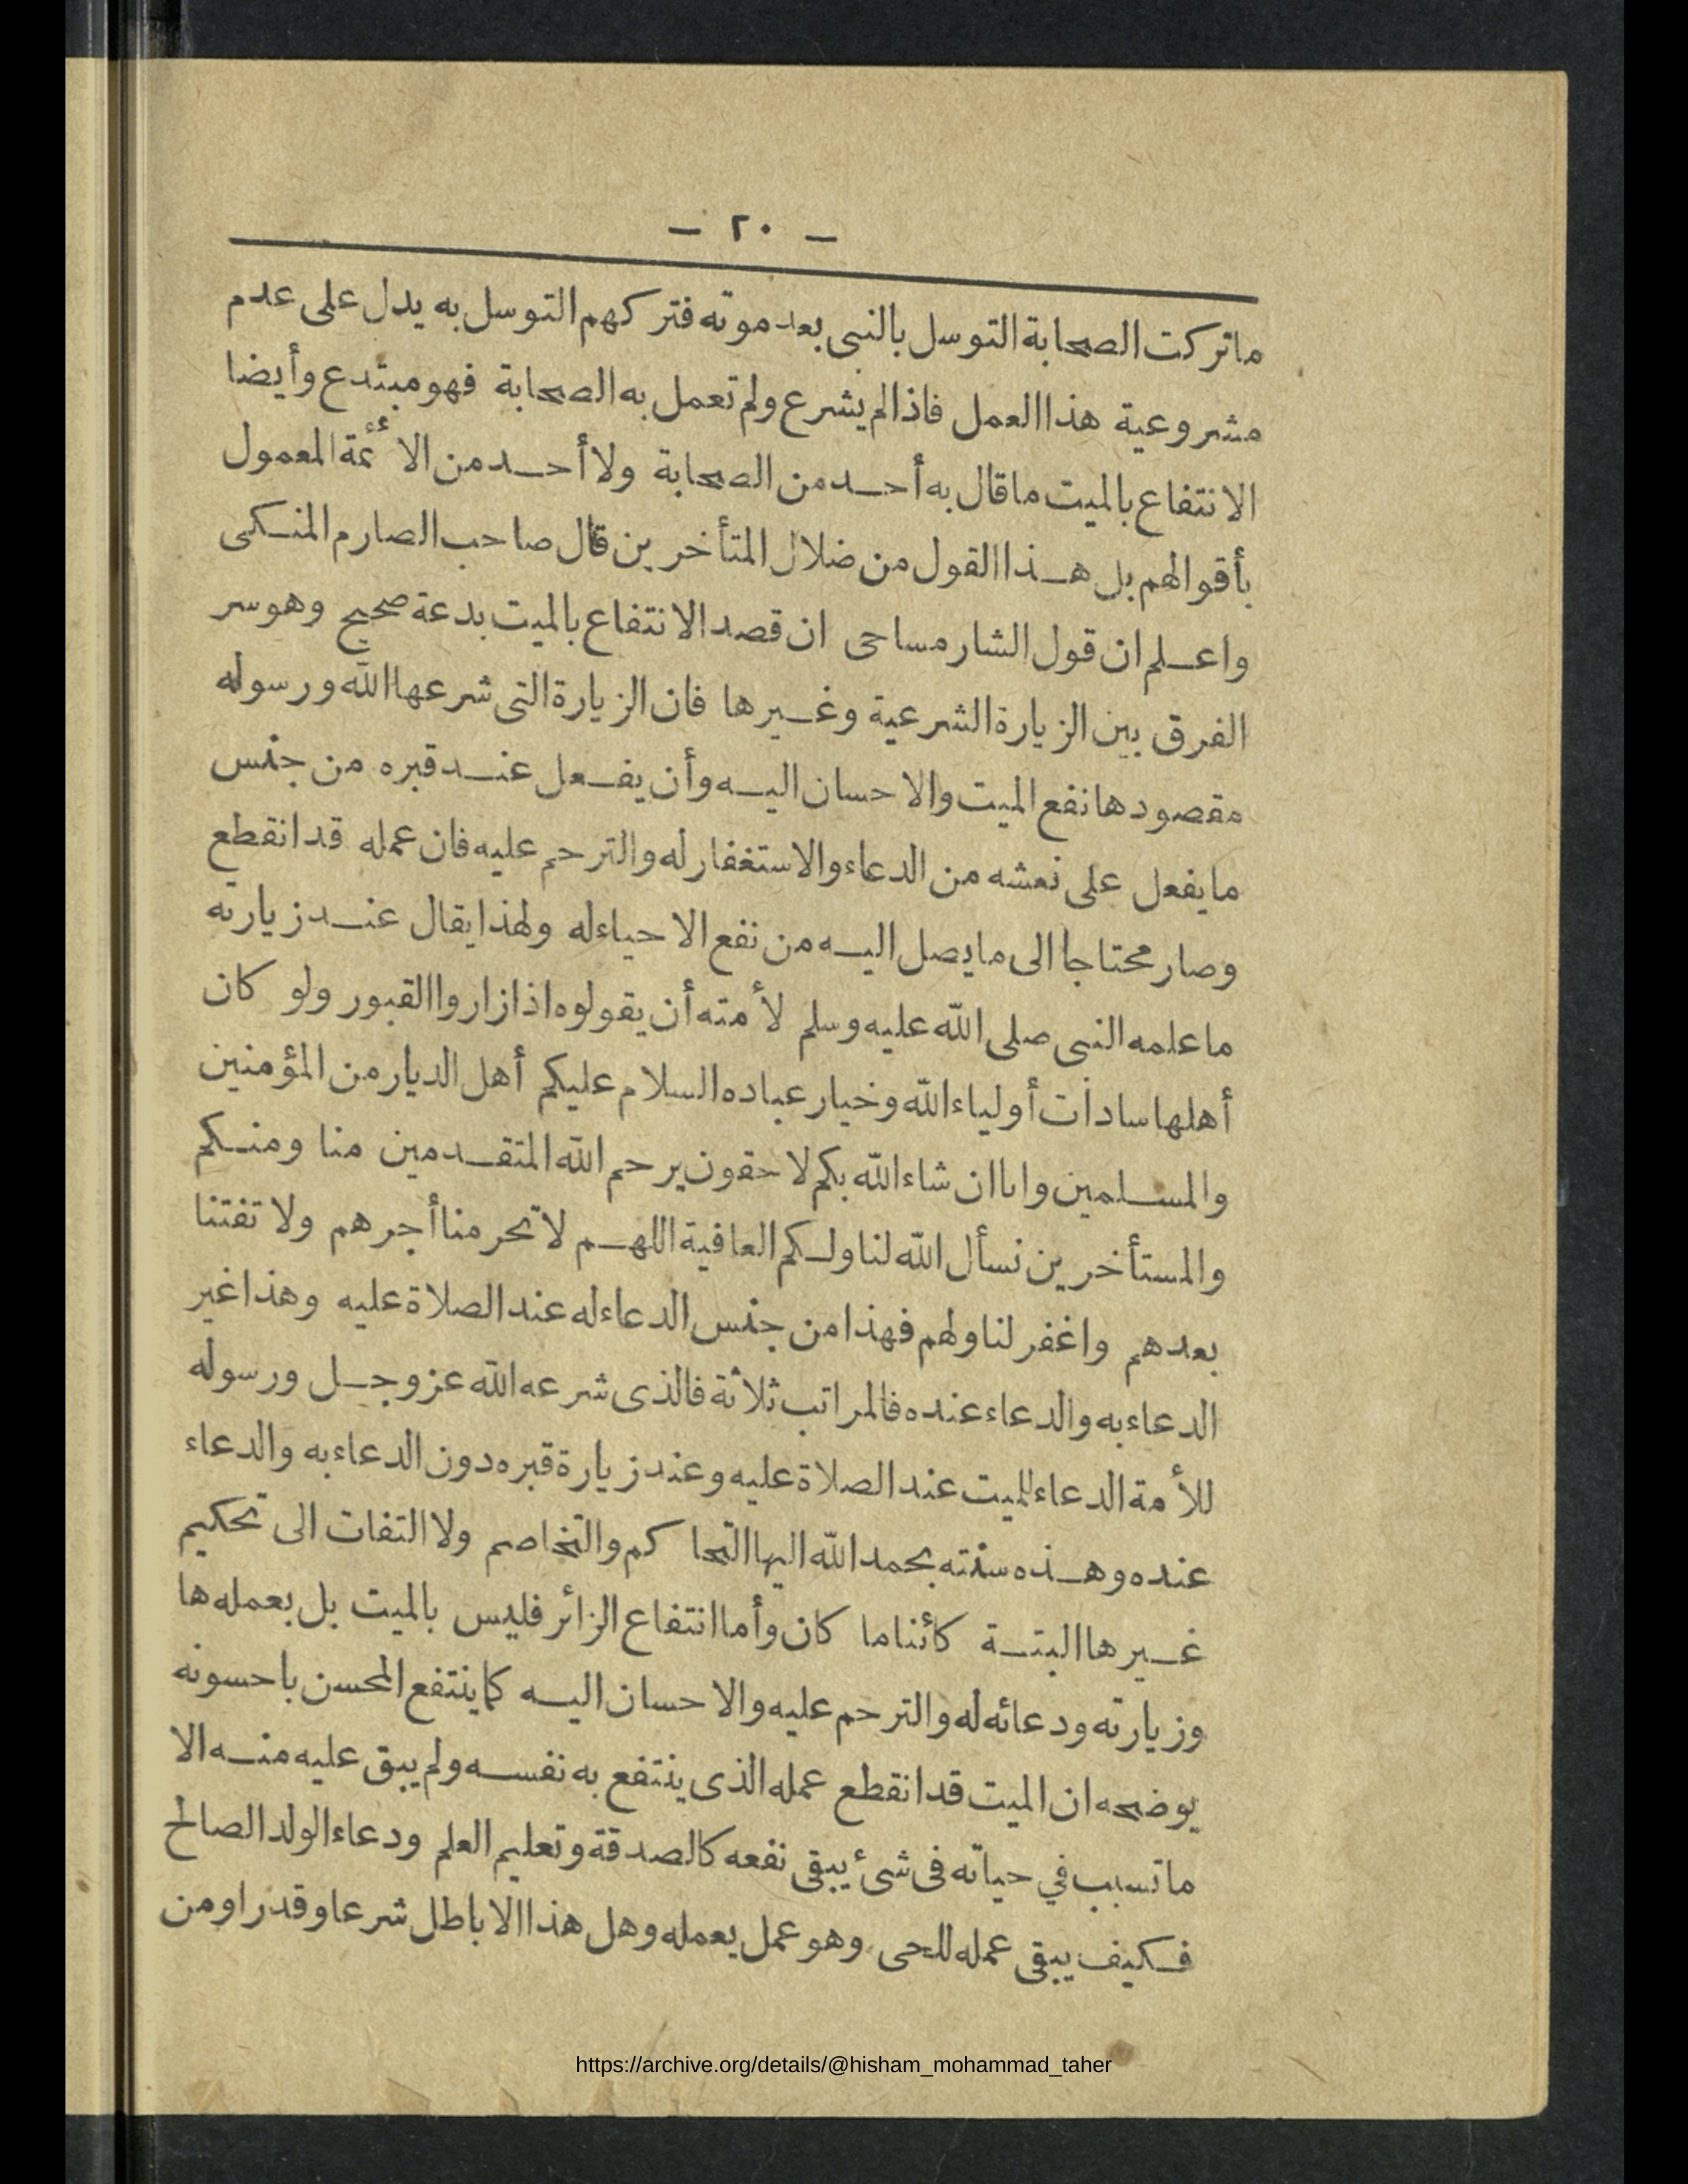 — ٢٠ —
ماتركت الصحابة التوسل بالنبى بعد موته فتركهم التوسل به يدل على عدم
مشروعية هذا العمل فاذا لم يشرع ولم تعمل به الصحابة فهو مبتدع وأيضا
الانتفاع بالميت ماقال به أحد من الصحابة ولا أحد من الائمة المعمول
بأقوالهم بل هذا القول من ضلال المتأخرين قال صاحب الصارم المنكى
واعلم ان قول الشارمساحى ان قصد الانتفاع بالميت بدعة صحيح وهو سر
الفرق بين الزيارة الشرعية وغيرها فان الزيارة التى شرعها الله ورسوله
مقصودها نفع الميت والاحسان اليه وأن يفعل عند قبره من جنس
مايفعل على نعشه من الدعاء والاستغفار له والترحم عليه فان عمله قد انقطع
وصار محتاجا الى مايصل اليه من نفع الاحياء له ولهذا يقال عند زيارته
ماعلمه النبى صلى الله عليه وسلم لأمته أن يقولوه اذا زاروا القبور ولو كان
أهلها سادات أولياء الله وخيار عباده السلام عليكم أهل الديار من المؤمنين
والمسلمين وانا ان شاء الله بكم لاحقون يرحم الله المتقدمين منا ومنكم
والمستأخرين نسأل الله لنا ولكم العافية اللهم لاتحرمنا أجرهم ولا تفتنا
بعدهم واغفر لنا ولهم فهذا من جنس الدعاء له عند الصلاة عليه وهذا غير
الدعاء به والدعاء عنده فالمراتب ثلاثة فالذى شرعه الله عز وجل ورسوله
للأمة الدعاء للميت عند الصلاة عليه وعند زيارة قبره دون الدعاء به والدعاء
عنده وهذه سنته بحمد الله اليها التحاكم والتخاصم ولا التفات الى تحكيم
غيرها البتة كائنا ما كان وأما انتفاع الزائر فليس بالميت بل بعمله ها
وزيارته ودعائه له والترحم عليه والاحسان اليه كماينتفع المحسن باحسونه
يوضحه ان الميت قد انقطع عمله الذى ينتفع به نفسه ولم يبق عليه منه الا
ماتسبب في حياته فى شئ يبقى نفعه كالصدقة وتعليم العلم ودعاء الولد الصالح
فكيف يبقى عمله للحى وهو عمل يعمله وهل هذا الا باطل شرعا وقدرا ومن
https://archive.org/details/@hisham_mohammad_taher